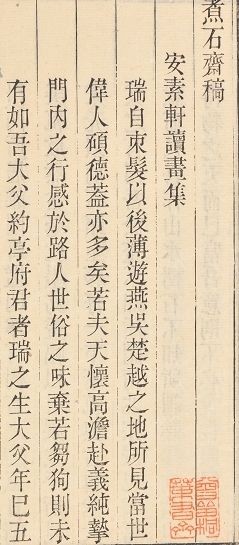 煮石齋稿
安素軒讀畫集
瑞自束髮以後薄遊燕吳楚越之地所見當世
偉人碩德蓋亦多矣若夫天懷高澹赴義純摯
門內之行感於路人世俗之味棄若芻狗則未
有如吾大父約亭府君者瑞之生大父年已五